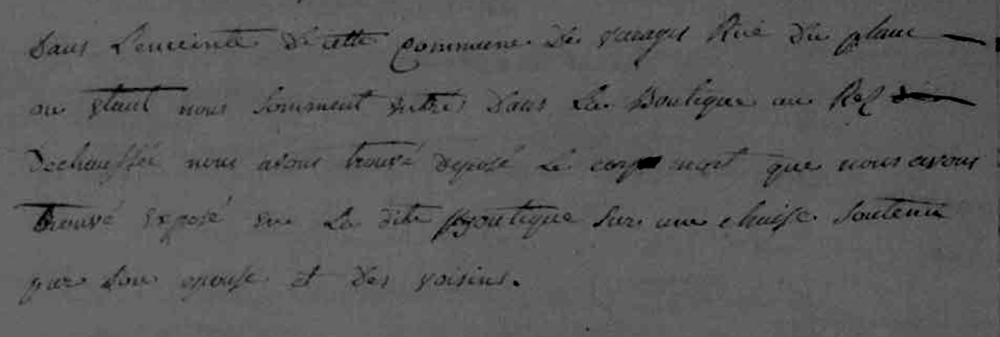 dans Lenceinte de cette Commune de varages Rue du plan
ou étant nous somment entres dans La Boutique au Rez
dechaussée nous avons trouvé deposé Le corp mort que nous avons
trouvé exposé en La dite Boutique sur une chaise soutenu
par son epouse et des voisins.